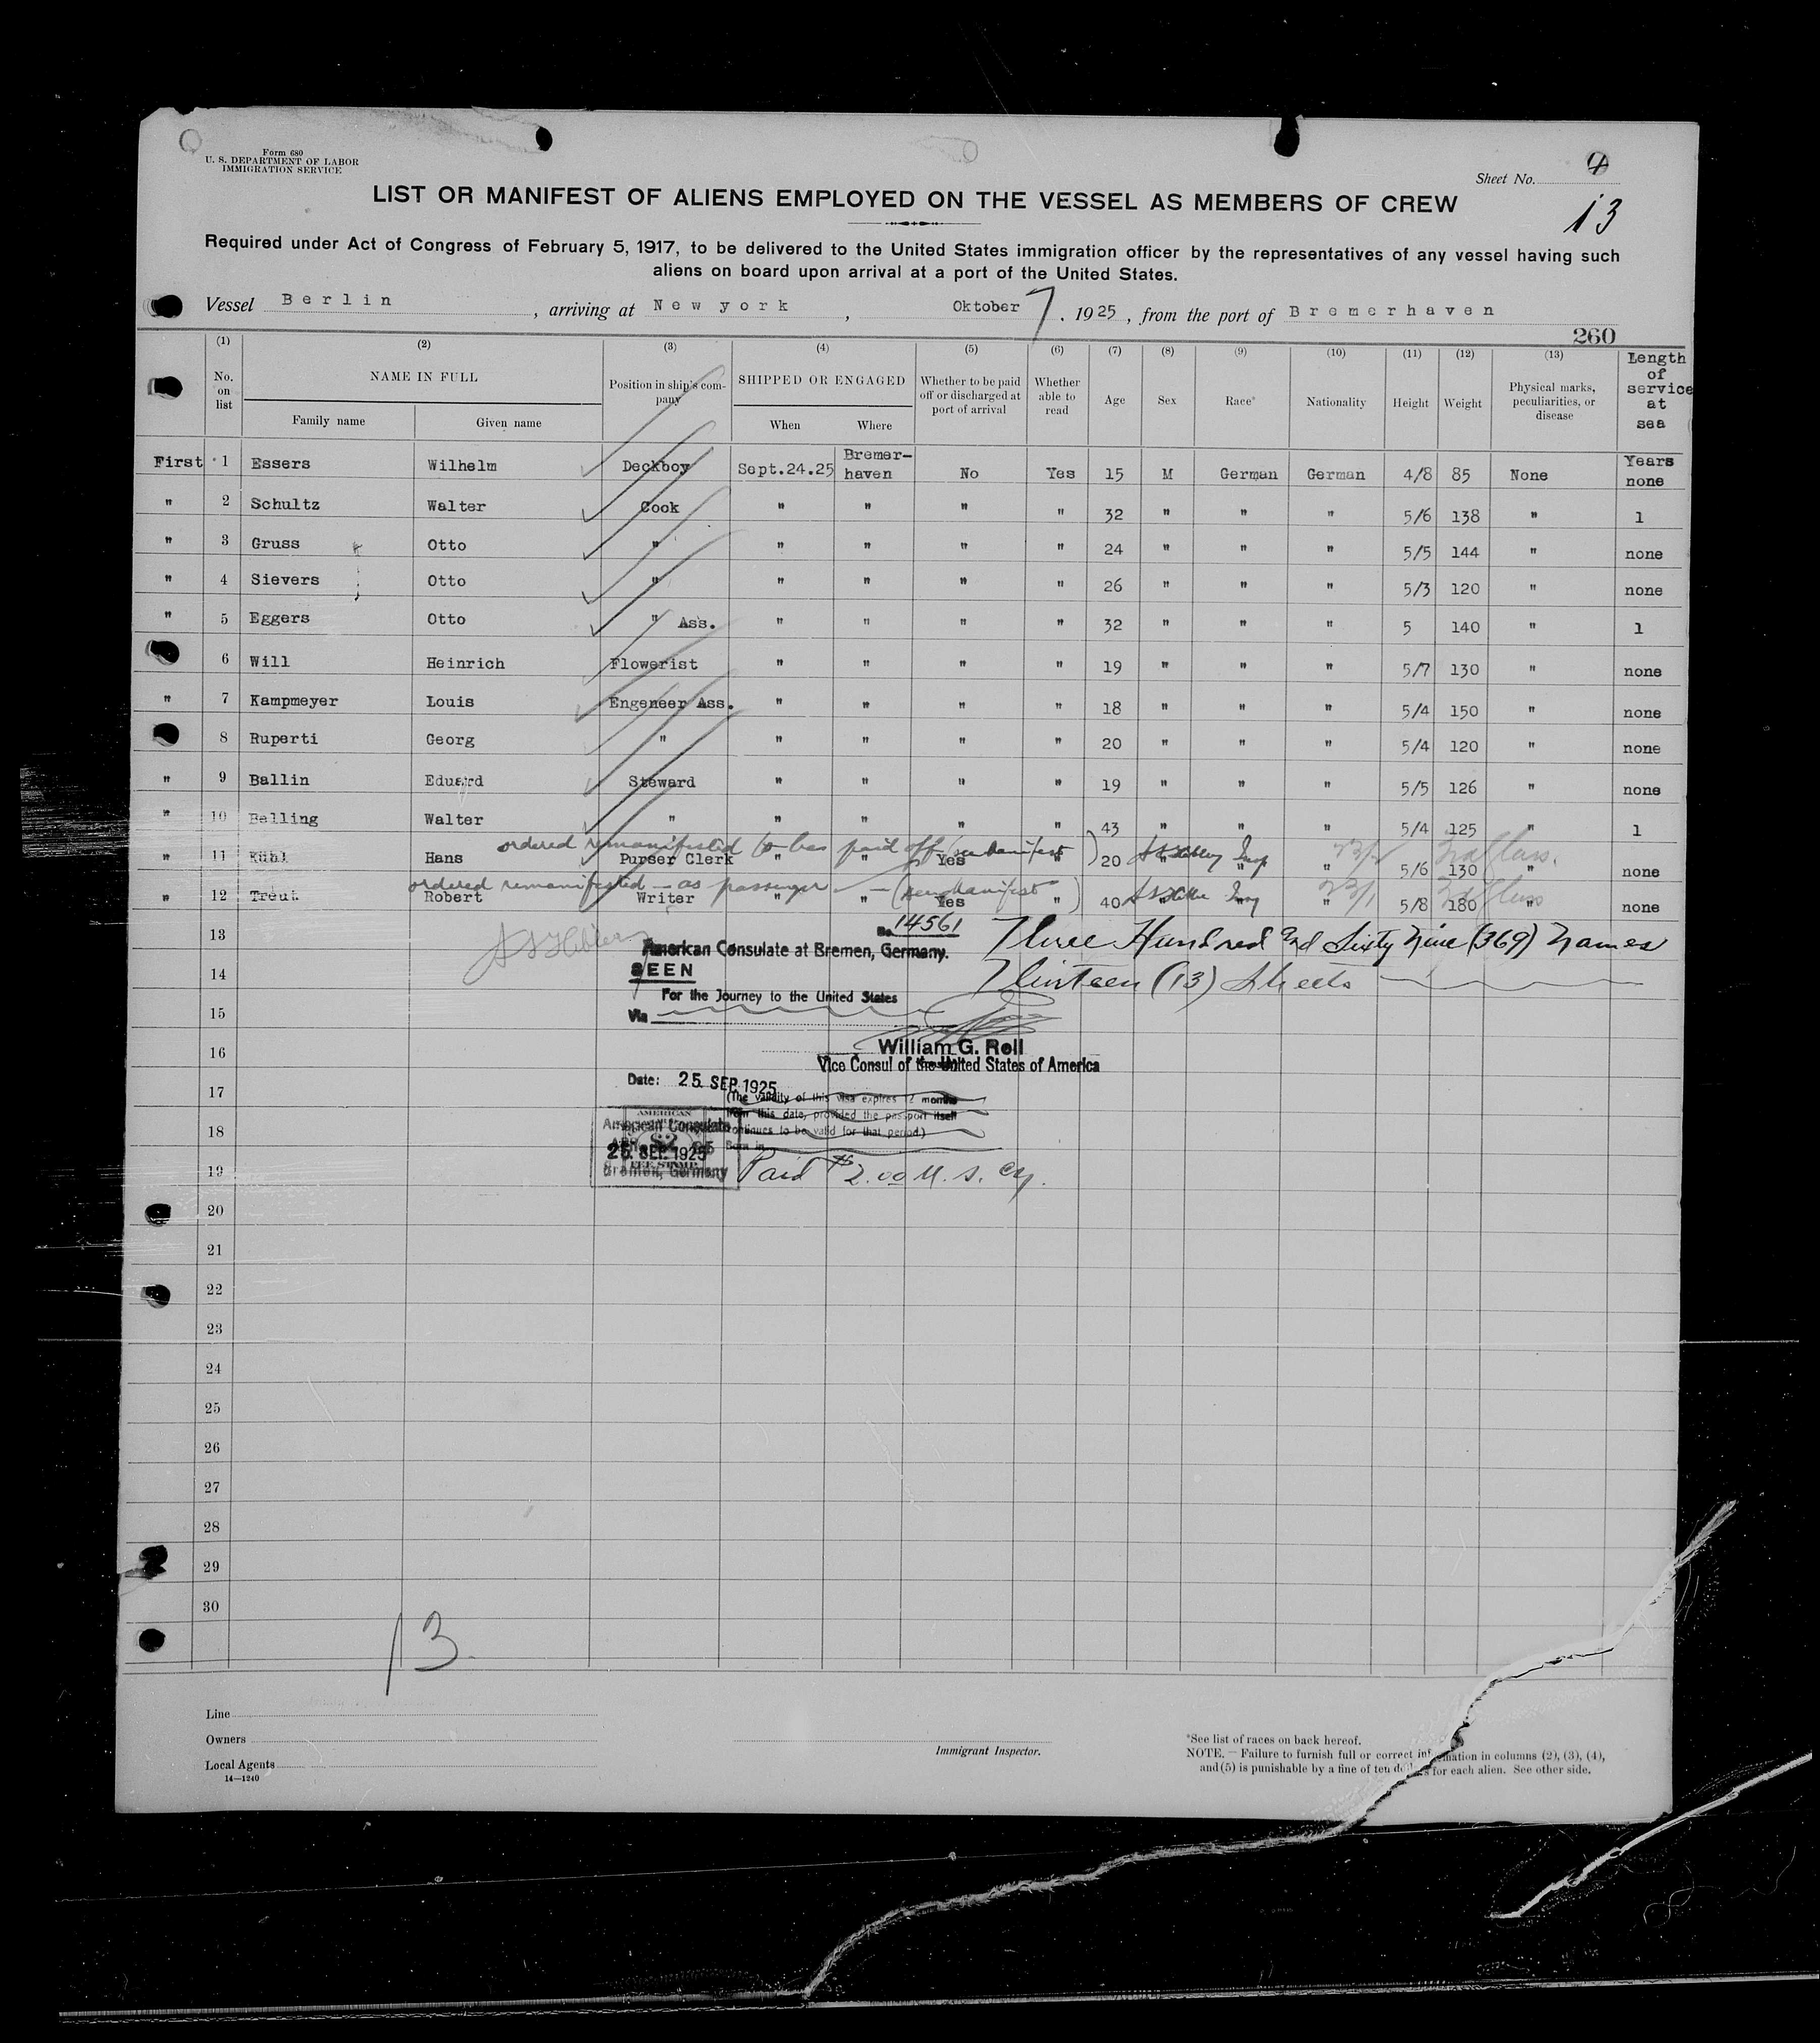 Form 680
U. S. DEPARTMENT OF LABOR
IMMIGRATION SERVICE
Sheet No. 4
13
LIST OR MANIFEST OF ALIENS EMPLOYED ON THE VESSEL AS MEMBERS OF CREW
Required under Act of Congress of February 5, 1917, to be delivered to the United States immigration officer by the representatives of any vessel having such
aliens on board upon arrival at a port of the United States.
Vessel Berlin, arriving at New york, Oktober 7, 1925, from the port of Bremerhaven
260
(1) (2) (3) (4) (5) (6) (7) (8) (9) (10) (11) (12) (13)
No. on list NAME IN FULL Family name Given name Position in ship's company SHIPPED OR ENGAGED When Where Whether to be paid off or discharged at port of arrival Whether able to read Age Sex Race* Nationality Height Weight Physical marks, peculiarities, or disease Length of service at sea
First 1 Essers Wilhelm Deckboy Sept.24.25 Bremer-haven No Yes 15 M German German 4/8 85 None Years none
" 2 Schultz Walter Cook " " " " 32 " " " 5/6 138 " 1
" 3 Gruss Otto " " " " " 24 " " " 5/5 144 " none
" 4 Sievers Otto " " " " " 26 " " " 5/3 120 " none
" 5 Eggers Otto " Ass. " " " " 32 " " " 5 140 " 1
6 Will Heinrich Flowerist " " " " 19 " " " 5/7 130 " none
" 7 Kampmeyer Louis Engeneer Ass. " " " " 18 " " " 5/4 150 " none
8 Ruperti Georg " " " " " 20 " " " 5/4 120 " none
" 9 Ballin Eduard Steward " " " " 19 " " " 5/5 126 " none
" 10 Belling Walter " " " " " 43 " " " 5/4 125 " 1
ordered remanifested to be paid off
" 11 Kühl Hans Purser Clerk " " Yes " 20 " " " 5/6 130 " none
ordered remanifested – as passenger – (new manifest)
" 12 Treut Robert Writer " " Yes " 40 " " " 5/8 180 " none
13
No. 14561
Three Hundred and Sixty Nine (369) Names
American Consulate at Bremen, Germany.
14
SEEN
Thirteen (13) Sheets
For the Journey to the United States
15
Via
16
William G. Roll
Vice Consul of the United States of America
Date: 25. SEP. 1925
17
(The validity of this visa expires 12 months
from this date, provided the passport itself
continues to be valid for that period.)
18
American Consulate
Born in
25. SEP. 1925
19
Bremen, Germany
Paid $2.00 U. S. Cy.
20
21
22
23
24
25
26
27
28
29
30
13
Line
Owners
Local Agents
14—1240
Immigrant Inspector.
*See list of races on back hereof.
NOTE.—Failure to furnish full or correct information in columns (2), (3), (4),
and (5) is punishable by a fine of ten dollars for each alien. See other side.